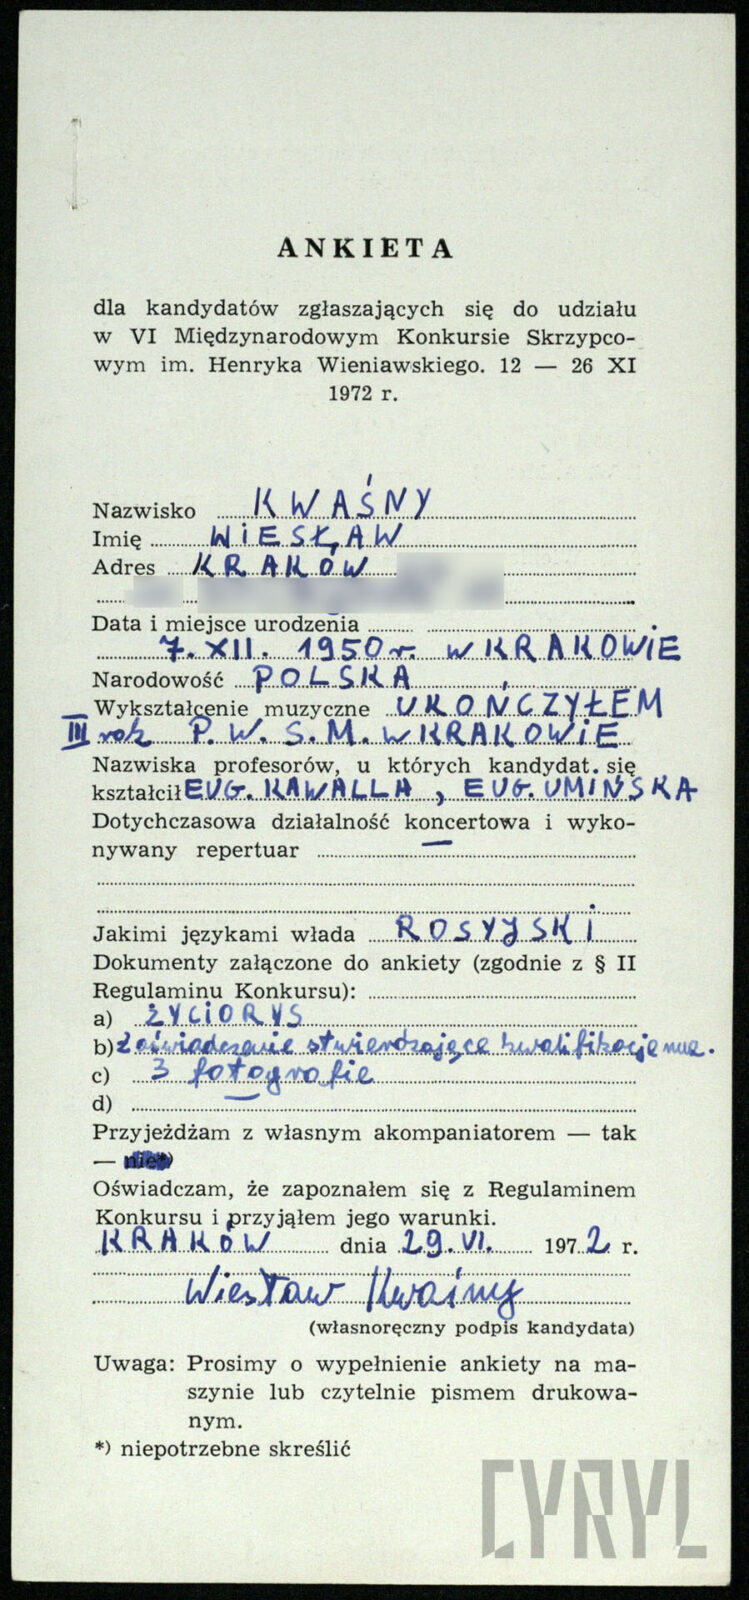 ANKIETA
dla kandydatów zgłaszających się do udziału
w VI Międzynarodowym Konkursie Skrzypco-
wym im. Henryka Wieniawskiego. 12 — 26 XI
1972 r.
Nazwisko KWAŚNY
Imię WIESŁAW
Adres KRAKÓW
Data i miejsce urodzenia
7. XII. 1950 r. w KRAKOWIE
Narodowość POLSKA
Wykształcenie muzyczne UKOŃCZYŁEM
III rok P. W. S. M. w KRAKOWIE
Nazwiska profesorów, u których kandydat się
kształcił EUG. KAWALLA, EUG. UMIŃSKA
Dotychczasowa działalność koncertowa i wyko-
nywany repertuar —
Jakimi językami włada ROSYJSKI
Dokumenty załączone do ankiety (zgodnie z § II
Regulaminu Konkursu):
a) ŻYCIORYS
b) Zaświadczenie stwierdzające kwalifikacje muz.
c) 3 fotografie
d) —
Przyjeżdżam z własnym akompaniatorem — tak
— nie*)
Oświadczam, że zapoznałem się z Regulaminem
Konkursu i przyjąłem jego warunki.
KRAKÓW dnia 29. VI. 1972 r.
Wiesław Kwaśny
(własnoręczny podpis kandydata)
Uwaga: Prosimy o wypełnienie ankiety na ma-
szynie lub czytelnie pismem drukowa-
nym.
*) niepotrzebne skreślić
CYRYL